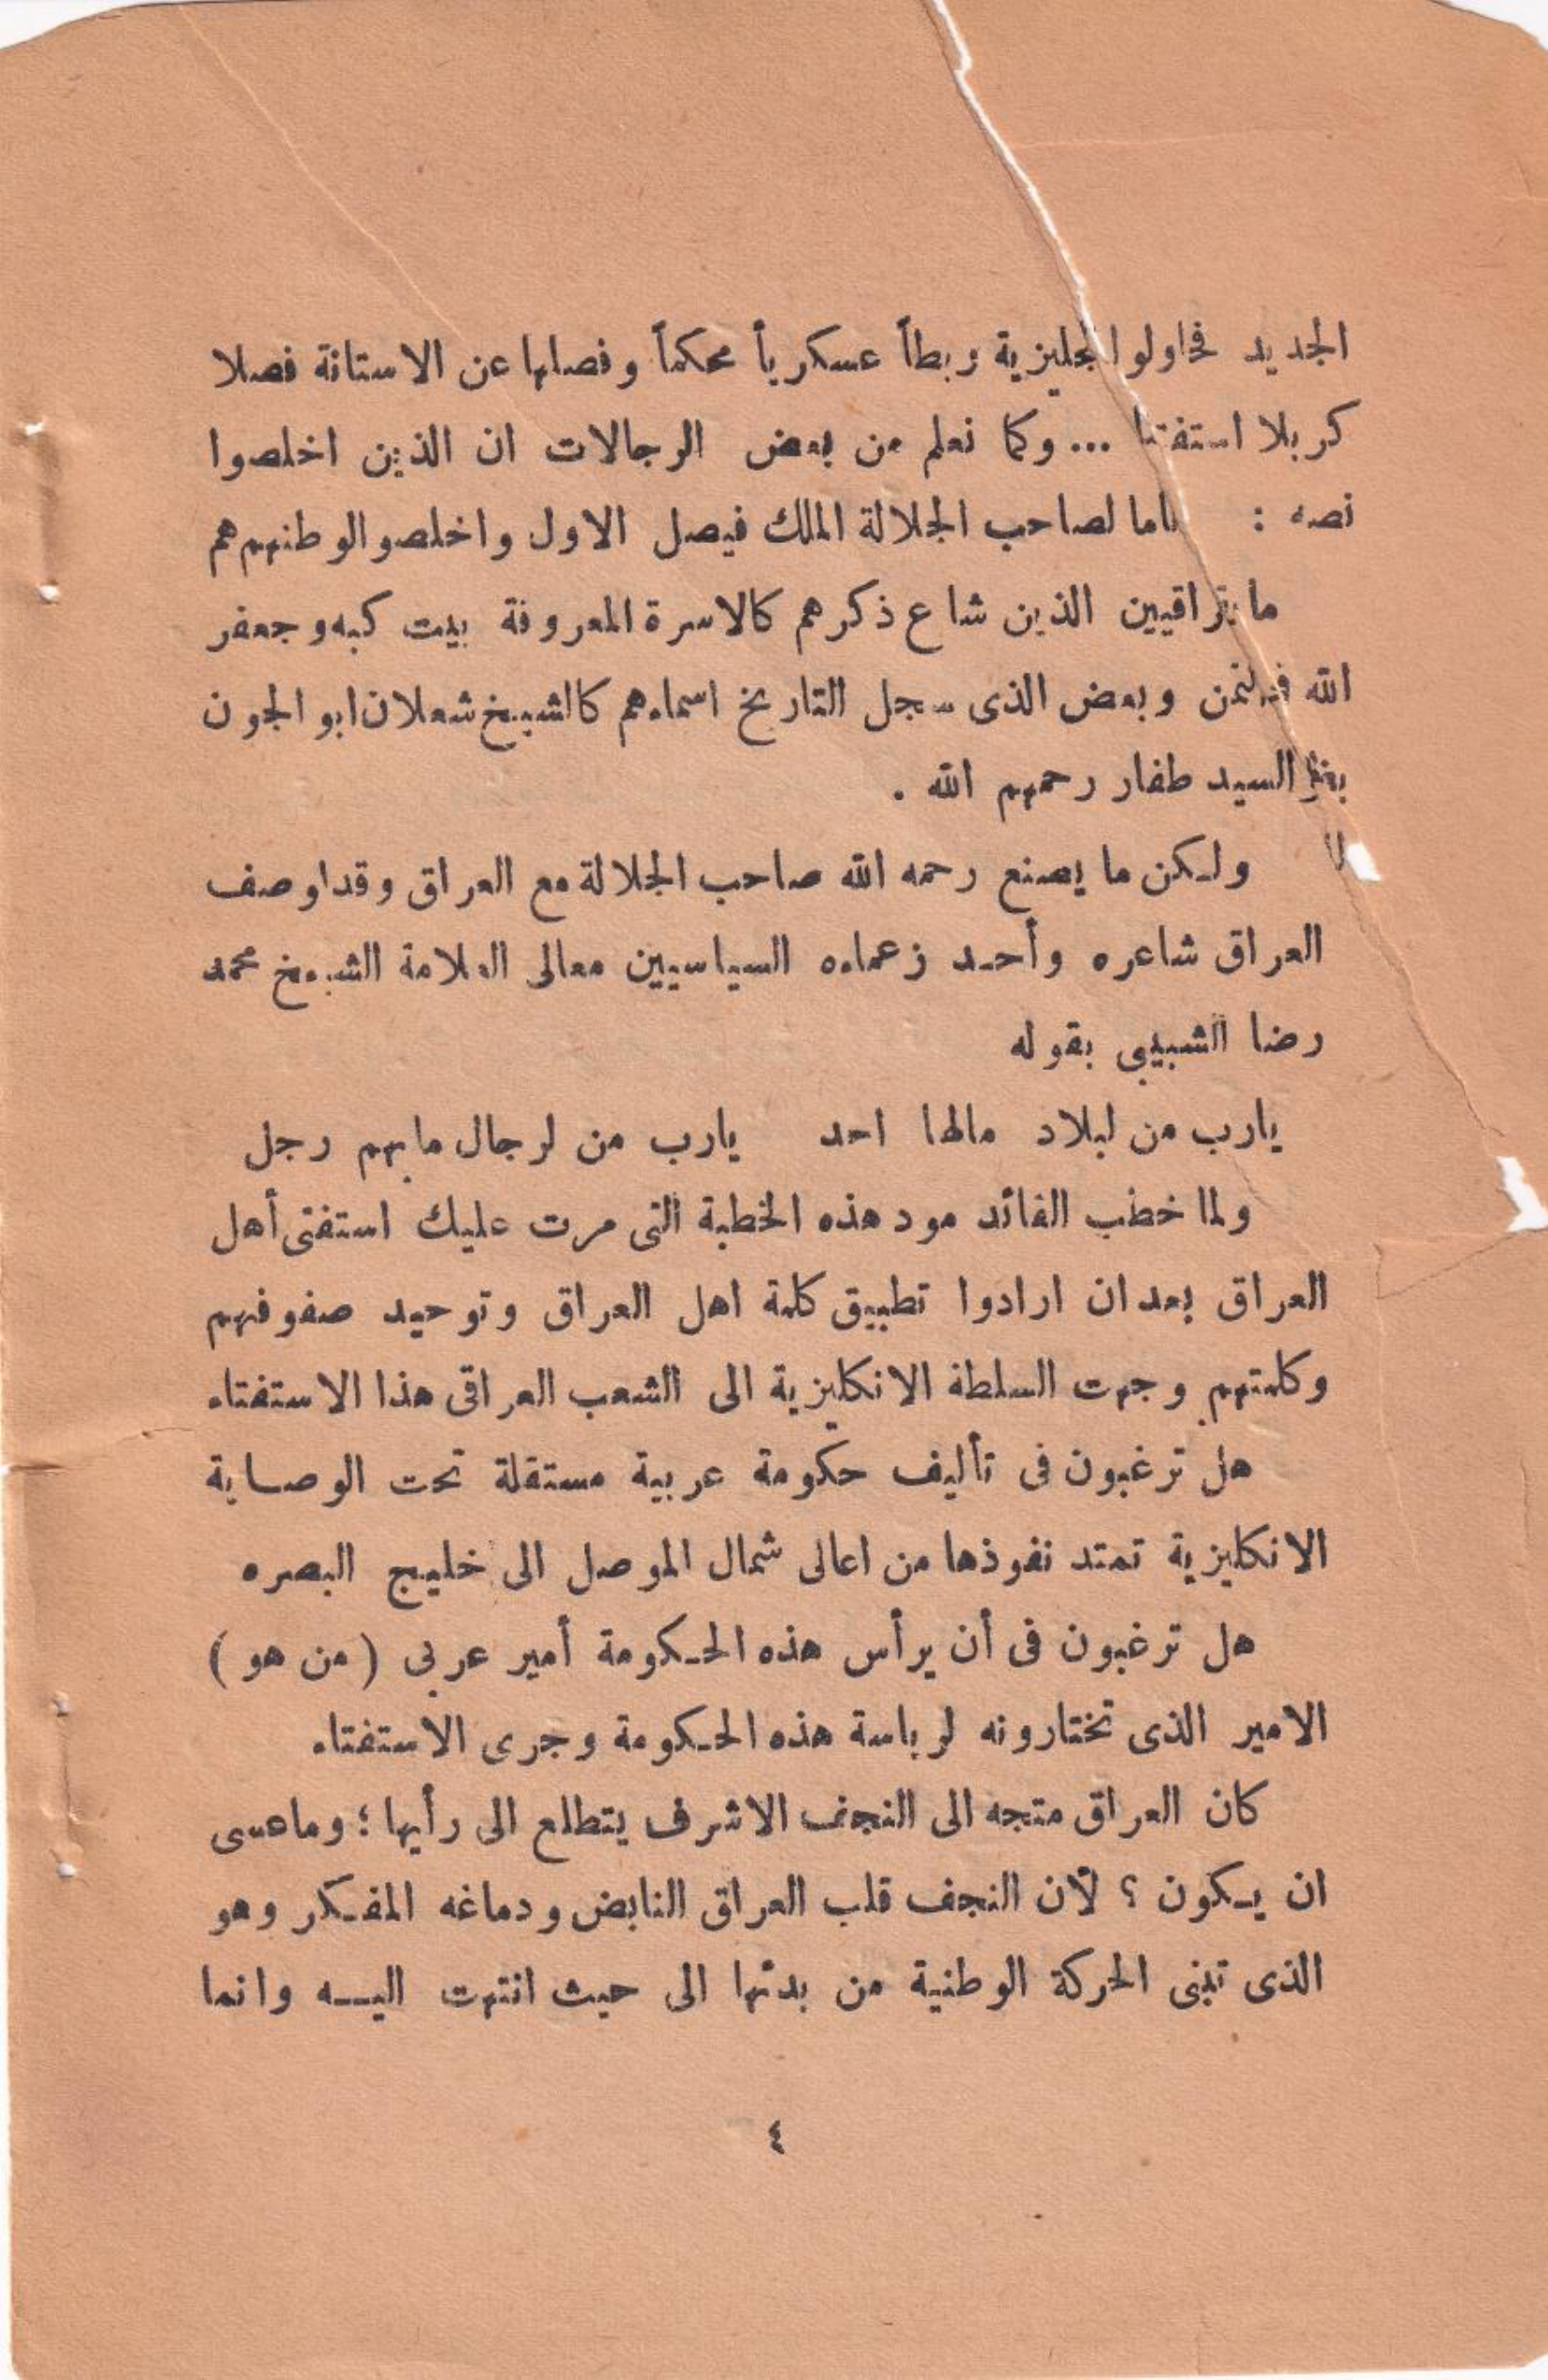 الجديد فحاولوا نجليزية ربطاً عسكرياً محكماً وفصلها عن الاستانة فصلا
كربلا استفتا ... وكما نعلم من بعض الرجالات ان الذين اخلصوا
نصه : اما لصاحب الجلالة الملك فيصل الاول واخلصوا لوطنهم هم
الذين شاع ذكرهم كالاسرة المعروفة ببيت كبه وجعفر
الله وبعض الذى سجل التاريخ اسماءهم كالشيخ شعلان ابو الجون
السيد طفار رحمهم الله .
ولكن ما يصنع رحمه الله صاحب الجلالة مع العراق وقد اوصف
العراق شاعره وأحد زعماءه السياسيين معالى العلامة الشيخ محمد
رضا الشبيبى بقوله
يارب من لبلاد مالها احد يارب من لرجال مابهم رجل
ولما خطب القائد مود هذه الخطبة التى مرت عليك استفتى أهل
العراق بعد ان ارادوا تطبيق كلمة اهل العراق وتوحيد صفوفهم
وكلمتهم وجهت السلطة الانكليزية الى الشعب العراقى هذا الاستفتاء
هل ترغبون فى تأليف حكومة عربية مستقلة تحت الوصاية
الانكليزية تمتد نفوذها من اعالى شمال الموصل الى خليج البصره
هل ترغبون فى أن يرأس هذه الحكومة أمير عربى ( من هو )
الامير الذى تختارونه لرياسة هذه الحكومة وجرى الاستفتاء
كان العراق متجه الى النجف الاشرف يتطلع الى رأيها ؛ وماعسى
ان يكون ؟ لأن النجف قلب العراق النابض ودماغه المفكر وهو
الذى تبنى الحركة الوطنية من بدئها الى حيث انتهت اليه وانما
٤